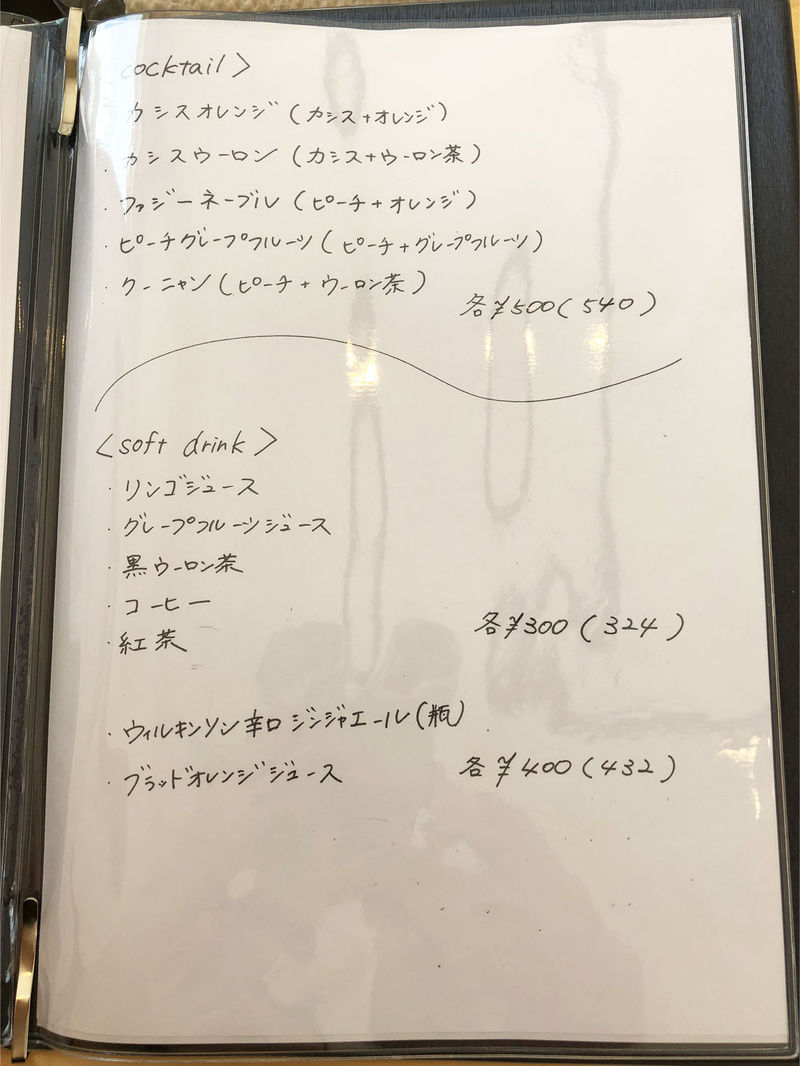 cocktail>
カシスオレンジ(カシス+オレンジ)
・カシスウーロン(カシス+ウーロン茶)
・ファジーネーブル(ピーチ+オレンジ)
・ピーチグレープフルーツ(ピーチ+グレープフルーツ)
・クーニャン(ピーチ+ウーロン茶)
各¥500(540)
<soft drink>
・リンゴジュース
・グレープフルーツジュース
・黒ウーロン茶
・コーヒー
・紅茶
各¥300(324)
・ウィルキンソン辛口ジンジャエール(瓶)
・ブラッドオレンジジュース
各¥400(432)